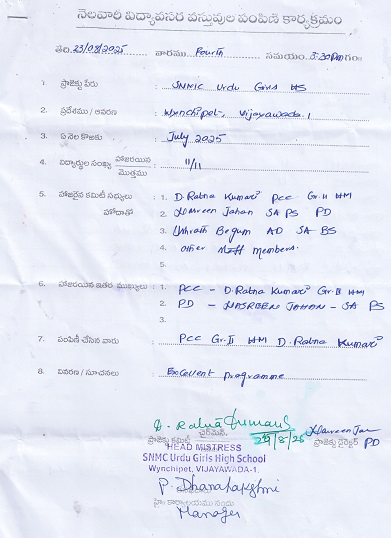 నెలవారీ విద్యావసర వస్తువుల పంపిణీ కార్యక్రమం
తేది 23/08/2025 వారము Fourth సమయం 3-30 PM గం:
1. ప్రాజెక్టు పేరు : SNMC Urdu Girls HS
2. ప్రదేశము / ఆవరణ : Wynchipet, Vijayawada.1
3. ఏ నెల కొఱకు : July 2025
4. విద్యార్థుల సంఖ్య హాజరయిన / మొత్తము : 11/11
5. హాజరైన కమిటీ సభ్యులు : 1. D. Ratna Kumari PCC Gr. II HM
హోదాతో 2. Nasreen Jahan SA PS PD
3. Ushrath Begum AD SA BS
4. Other Staff members.
5.
6. హాజరయిన ఇతర ముఖ్యులు : 1. PCC - D. Ratna Kumari Gr. II HM
2. PD - NASREEN JAHAN - SA PS
3.
7. పంపిణీ చేసిన వారు : PCC Gr-II HM D. Ratna Kumari
8. వివరణ / సూచనలు : Excellent programme
D. Ratna Kumari
చైర్‌మెన్, 29/8/25 Nasreen Jan
ప్రాజెక్టు కమిటీ ప్రాజెక్టు డైరెక్టర్ PD
HEAD MISTRESS
SNMC Urdu Girls High School
Wynchipet, VIJAYAWADA-1.
P. Dhanalakshmi
Manager